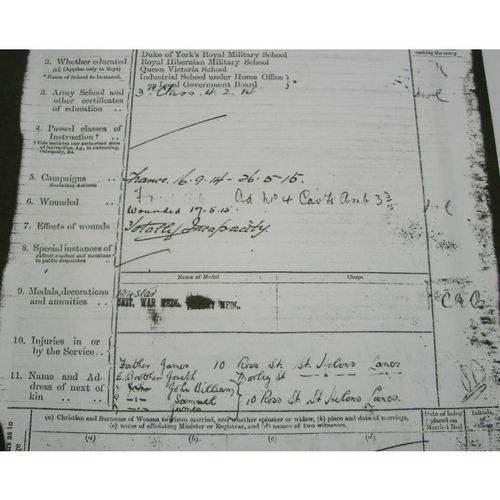 Duke of York's Royal Military School
2. Whether educated Royal Hibernian Military School
at (Applies only to Boys) Queen Victoria School
*Name of School to be stated. Industrial School under Home Office
or Local Government Board)
making the entry
3. Army School and 3rd Class. 4. 2. 14
other certificates
of education ..
4. Passed classes of
Instruction† ..
5. Campaigns .. France. 16.9.14 - 26.5.15.
6. Wounded .. Ad No 4 Cav Fd Amb
Wounded 17.5.15.
7. Effects of wounds Totally Incapacity.
8. Special instances of
gallant conduct and mentions
in public despatches ..
Name of Medal Clasps
9. Medals, decorations 1914 Star
and annuities .. BRIT. WAR MEDL. VICTORY MEDL.
10. Injuries in or
by the Service..
Father James 10 Ross St. St Helens Lancs
11. Name and Ad- E. Brother Joseph Morley St
dress of next of John William
kin .. Samuel 10 Ross St. St Helens Lancs.
James
(a) Christian and Surname of Woman to whom married, and whether spinster or widow, (b) place and date of marriage,
(c) name of officiating Minister or Registrar, and (d) names of two witnesses.
Date of being
placed on
Married Roll
Initials
of Officer
(a) (b). (c) (d)